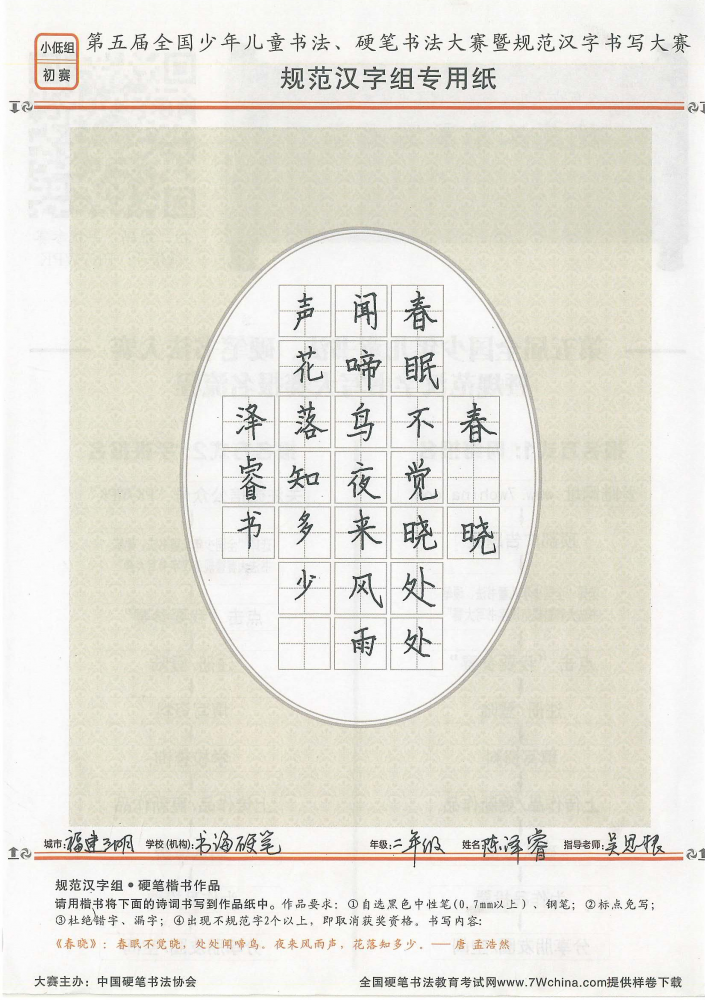 小低组
初赛
第五届全国少年儿童书法、硬笔书法大赛暨规范汉字书写大赛
规范汉字组专用纸
春晓
春眠不觉晓处处
闻啼鸟夜来风雨
声花落知多少
泽睿书
城市:福建三明 学校(机构):书海硬笔 年级:二年级 姓名:陈泽睿 指导老师:吴思根
规范汉字组●硬笔楷书作品
请用楷书将下面的诗词书写到作品纸中。作品要求：①自选黑色中性笔(0.7mm以上)、钢笔；②标点免写；
③杜绝错字、漏字；④出现不规范字2个以上，即取消获奖资格。书写内容：
《春晓》：春眠不觉晓，处处闻啼鸟。夜来风雨声，花落知多少。——唐 孟浩然
大赛主办：中国硬笔书法协会
全国硬笔书法教育考试网www.7Wchina.com提供样卷下载